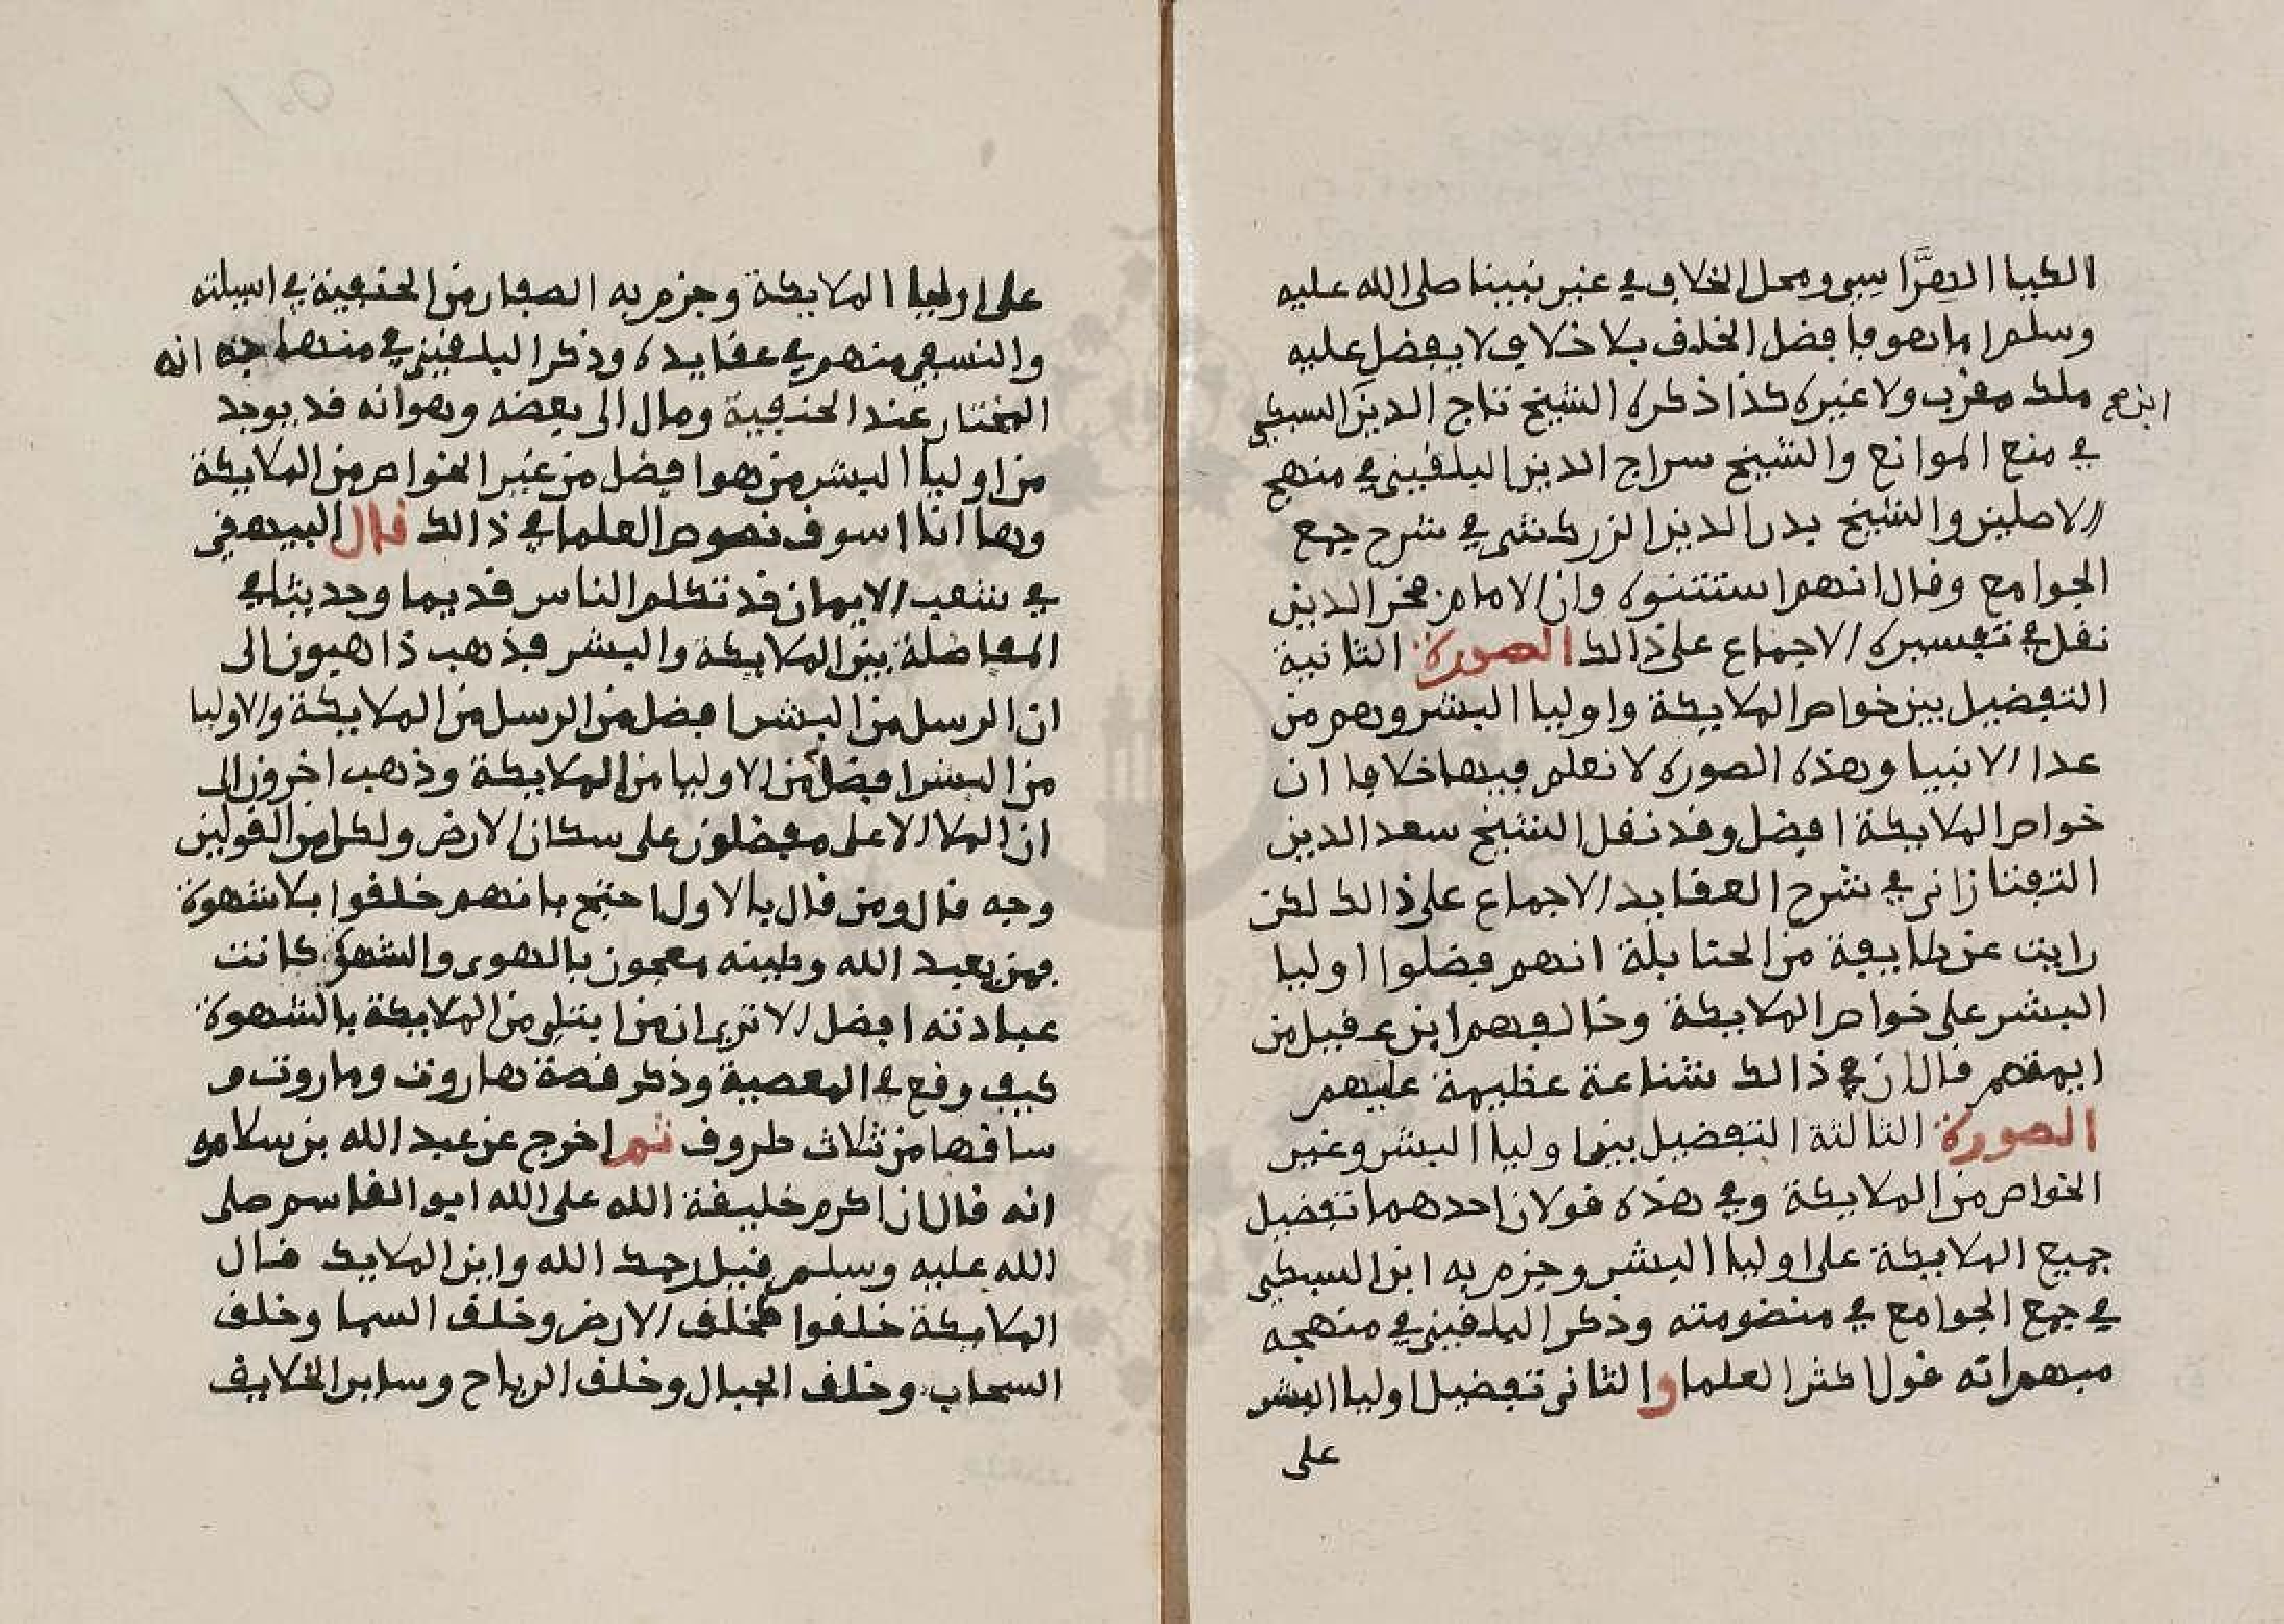 الكيا الهرّاسي ومحل الخلاف في غير نبينا صلى الله عليه
وسلم اما هو فافضل الخلق بلا خلاف لا يفضل عليه
ملك مقرب ولا غيره كذا ذكره الشيخ تاج الدين السبكي
في منع الموانع والشيخ سراج الدين البلقيني في منهج
الاصلين والشيخ بدر الدين الزركشي في شرح جمع
الجوامع وقال انهم استثنوه وان الامام فخر الدين
نقل في تفسيره الاجماع على ذالك الصورة الثانية
التفضيل بين خواص الملايكة واوليا البشر وهم من
عدا الانبيا وهذه الصورة لا نعلم فيها خلافا ان
خواص الملايكة افضل وقد نقل الشيخ سعد الدين
التفتازاني في شرح العقايد الاجماع على ذالك لكن
رايت عن طايفة من الحنابلة انهم فضلوا اوليا
البشر على خواص الملايكة وخالفهم ابن عقيل من
ايمتهم قال ان في ذالك شناعة عظيمة عليهم
الصورة الثالثة التفضيل بين اوليا البشر وغير
الخواص من الملايكة وفي هذه قولان احدهما تفضيل
جميع الملايكة على اوليا البشر وجزم به ابن السبكي
في جمع الجوامع في منضومته وذكر البلقيني في منهجه
مبهم انه قول اكثر العلما والثاني تفضيل اوليا البشر
على
على اوليا الملايكة وجزم به الصفار من الحنفية في اسيلته
والنسفي منهم في عقايده وذكر البلقيني في منهاجه انه
المختار عند الحنفية ومال الى بعضه وهو انه قد يوجد
من اوليا البشر من هو افضل من غير الخواص من الملايكة
وها انا اسوق نصوص العلما في ذالك قال البيهقي
في شعب الايمان قد تكلم الناس قديما وحديثا في
المفاضلة بين الملايكة والبشر فذهب ذاهبون الى
ان الرسل من البشر افضل من الرسل من الملايكة والاوليا
من البشر افضل من الاوليا من الملايكة وذهب اخرون الى
ان الملا الاعلى مفضلون على سكان الارض ولكل من القولين
وجه قال ومن قال بالاول احتج بانهم خلقوا بلا شهوة
فمن يعبد الله وطينته معجون بالهوى والشهوة كانت
عبادته افضل الا ترى ان من ابتلي من الملايكة بالشهوة
كيف وقع في المعصية وذكر قصة هاروت وماروت و
ساقها من ثلاث طروق ثم اخرج عن عبد الله بن سلام
انه قال ان اكرم خليفة الله على الله ابو القاسم صلى
الله عليه وسلم قيل رحمك الله واين الملايك قال
الملايكة خلقوا كخلق الارض وخلق السما وخلق
السحاب وخلق الجبال وخلق الرياح وساير الخلايق